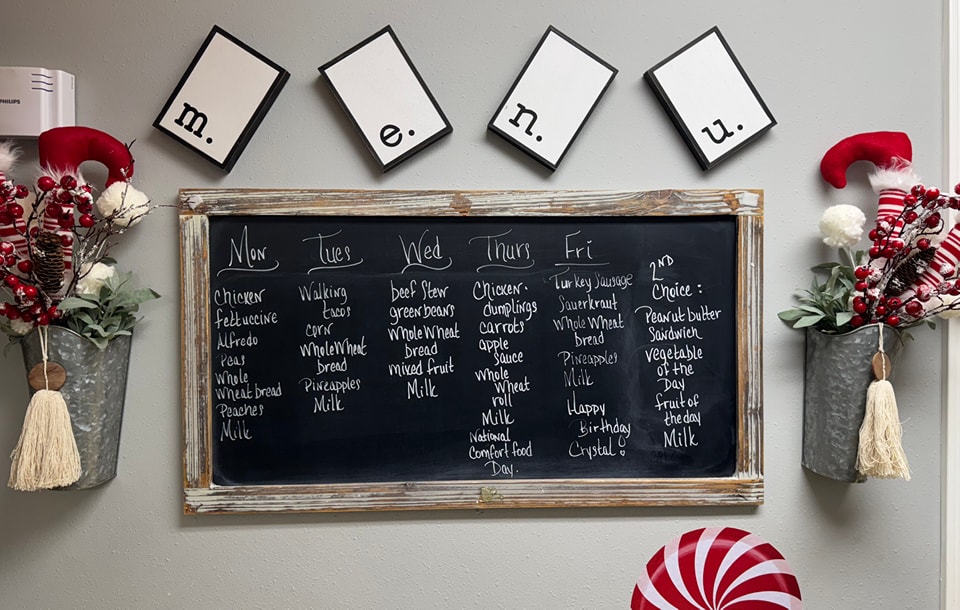 PHILIPS
m.
e.
n.
u.
Mon
Chicken
fettuccine
Alfredo
Peas
Whole
Wheat bread
Peaches
Milk
Tues
Walking
tacos
corn
Whole Wheat
bread
Pineapples
Milk
Wed
beef Stew
green beans
Whole Wheat
bread
mixed fruit
Milk
Thurs
Chicken.
dumplings
carrots
apple
sauce
Whole
Wheat
roll
Milk
National
Comfort food
Day.
Fri
Turkey Sausage
Sauerkraut
Whole Wheat
bread
Pineapples
Milk
Happy
Birthday
Crystal!
2ND
Choice:
Peanut butter
Sandwich
vegetable
of the
Day
fruit of
the day
Milk